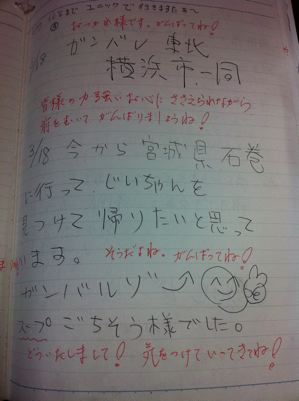 おつかれ様です。がんばってね!
3/18 ガンバレ 東北
横浜市一同
皆様の力強いお心に ささえられながら
前をむいて がんばりましょうね!
3/18 今から宮城県 石巻
に行って、じいちゃんを
見つけて 帰りたいと思って
います。 そうだよね。がんばってね!
ガンバルゾー
スープ ごちそう様でした。
どういたしまして! 気をつけていってきてね!